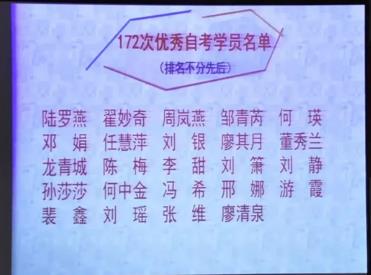 172次优秀自考学员名单
（排名不分先后）
陆罗燕 翟妙奇 周岚燕 邹青芮 何瑛
邓娟 任慧萍 刘银 廖其月 董秀兰
龙青城 陈梅 李甜 刘箫 刘静
孙莎莎 何中金 冯希 邢娜 游霞
裴鑫 刘瑶 张维 廖清泉